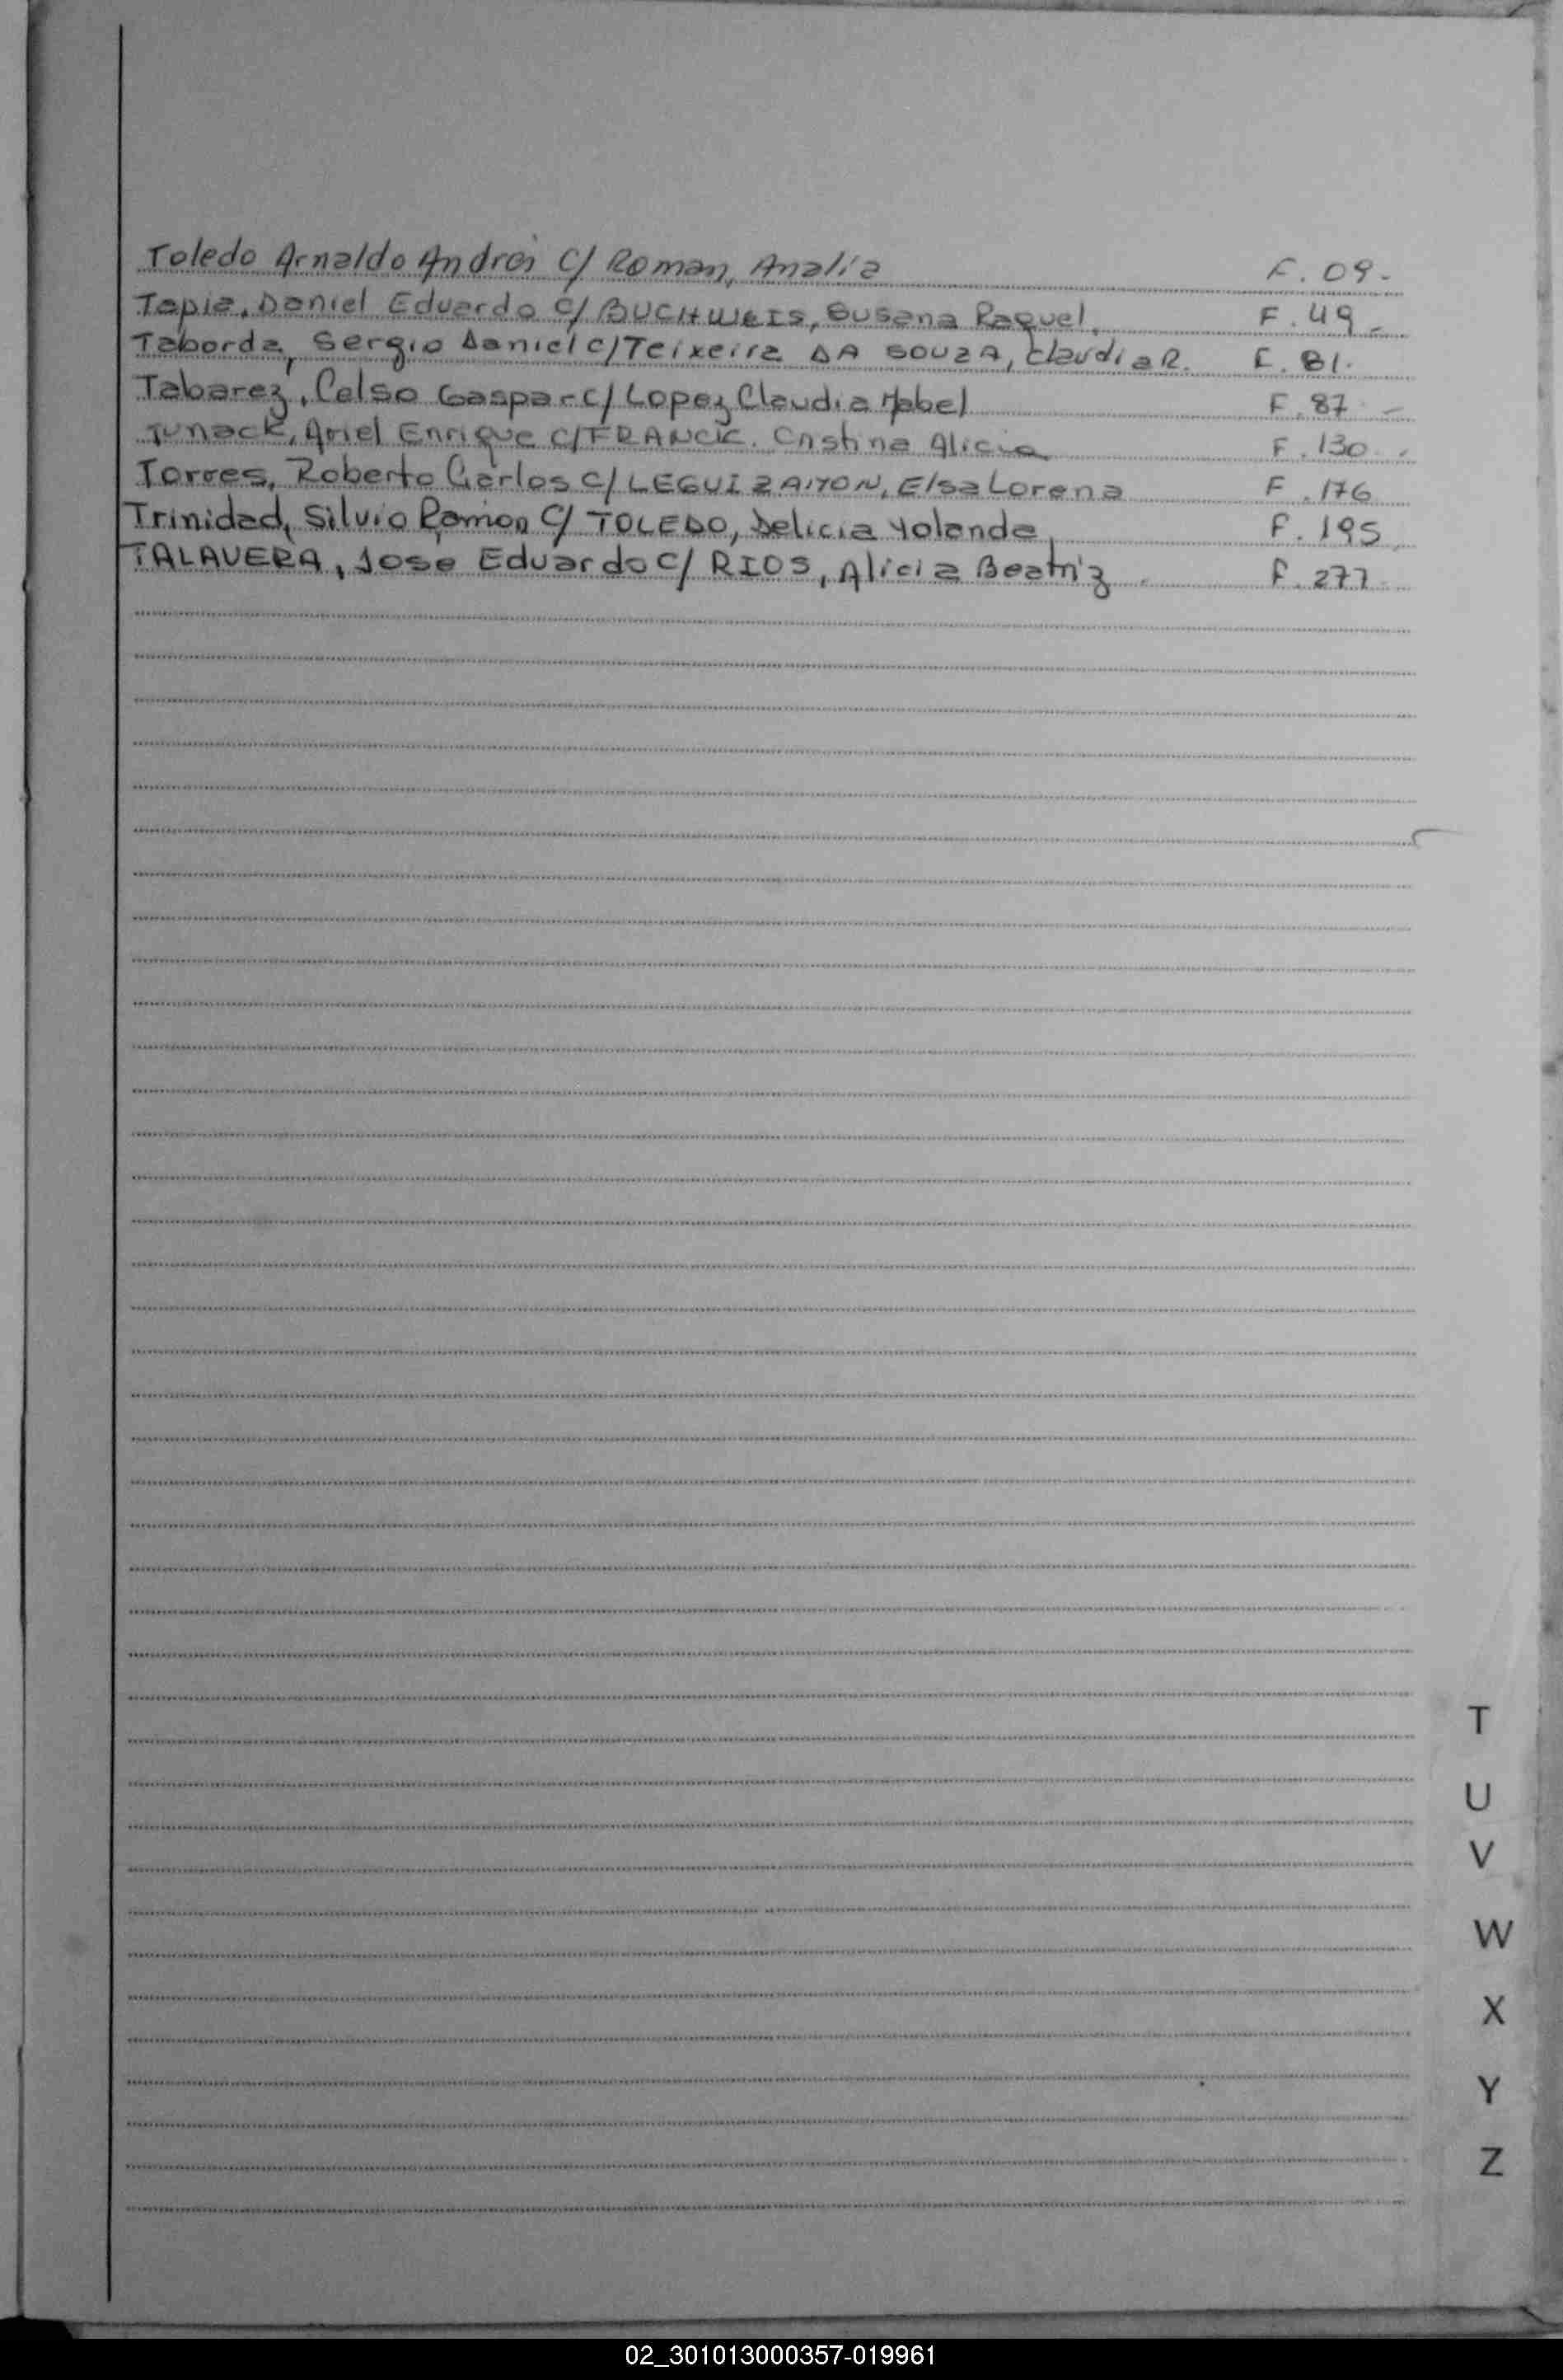 Toledo Arnaldo Andrés C/ Roman, Analia F. 09.-
Tapia, Daniel Eduardo C/ BUCHWEIS, Susana Raquel. F. 49.-
Taborda, Sergio Daniel C/ Teixeira DA SOUZA, Claudia R. F. 81.
Tabarez, Celso Gaspar C/ Lopez Claudia Mabel F. 87 -
Tunack, Ariel Enrique C/ FRANCK. Cristina Alicia F. 130.
Torres, Roberto Carlos C/ LEGUIZAMON, Elsa Lorena F. 176
Trinidad, Silvio Ramon C/ TOLEDO, Delicia Yolanda F. 195
TALAVERA, Jose Eduardo C/ RIOS, Alicia Beatriz. F. 277
T
U
V
W
X
Y
Z
02_301013000357-019961